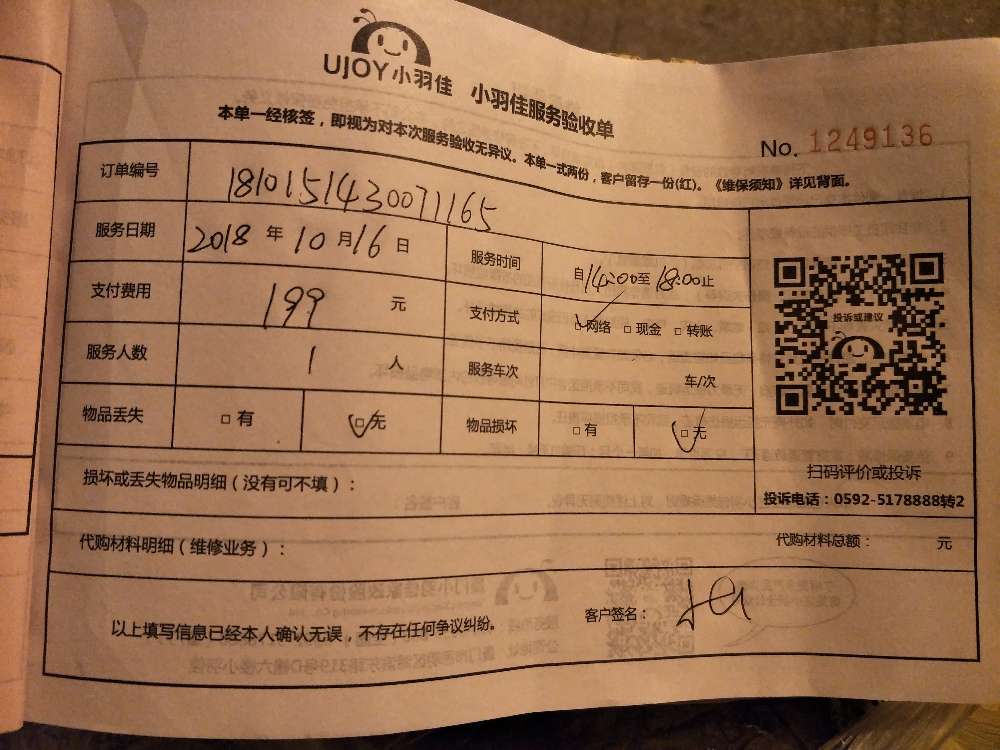 UJOY小羽佳 小羽佳服务验收单
本单一经核签，即视为对本次服务验收无异议。本单一式两份，客户留存一份(红)。《维保须知》详见背面。
No. 1249136
订单编号 1810151430071165
服务日期 2018 年 10 月 16 日 服务时间 自14:00至18:00止
支付费用 199 元 支付方式 □网络 □现金 □转账
投诉或建议
服务人数 1 人 服务车次 车/次
物品丢失 □有 □无 物品损坏 □有 □无
扫码评价或投诉
投诉电话：0592-5178888转2
损坏或丢失物品明细（没有可不填）：
代购材料明细（维修业务）： 代购材料总额： 元
以上填写信息已经本人确认无误，不存在任何争议纠纷。 客户签名：